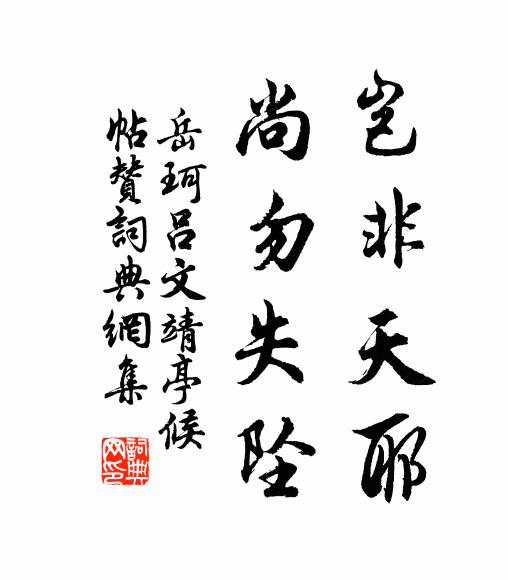 岂非天耶
尚勿失坠
岳珂吕文靖亭候
帖赞词典網集
詞典
网印